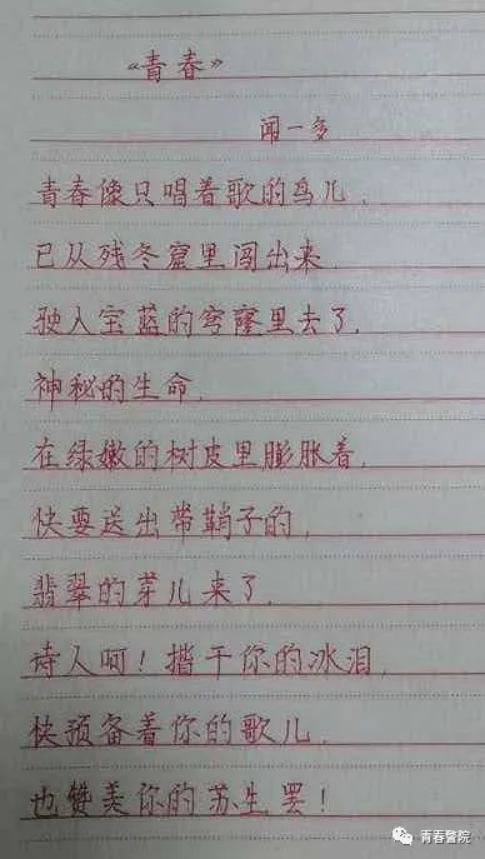 《青春》
闻一多
青春像只唱着歌的鸟儿，
已从残冬窟里闯出来，
驶入宝蓝的穹窿里去了。
神秘的生命，
在绿嫩的树皮里膨胀着，
快要送出带鞘子的，
翡翠的芽儿来了。
诗人呵！揩干你的冰泪，
快预备着你的歌儿，
也赞美你的苏生罢！
青春警院